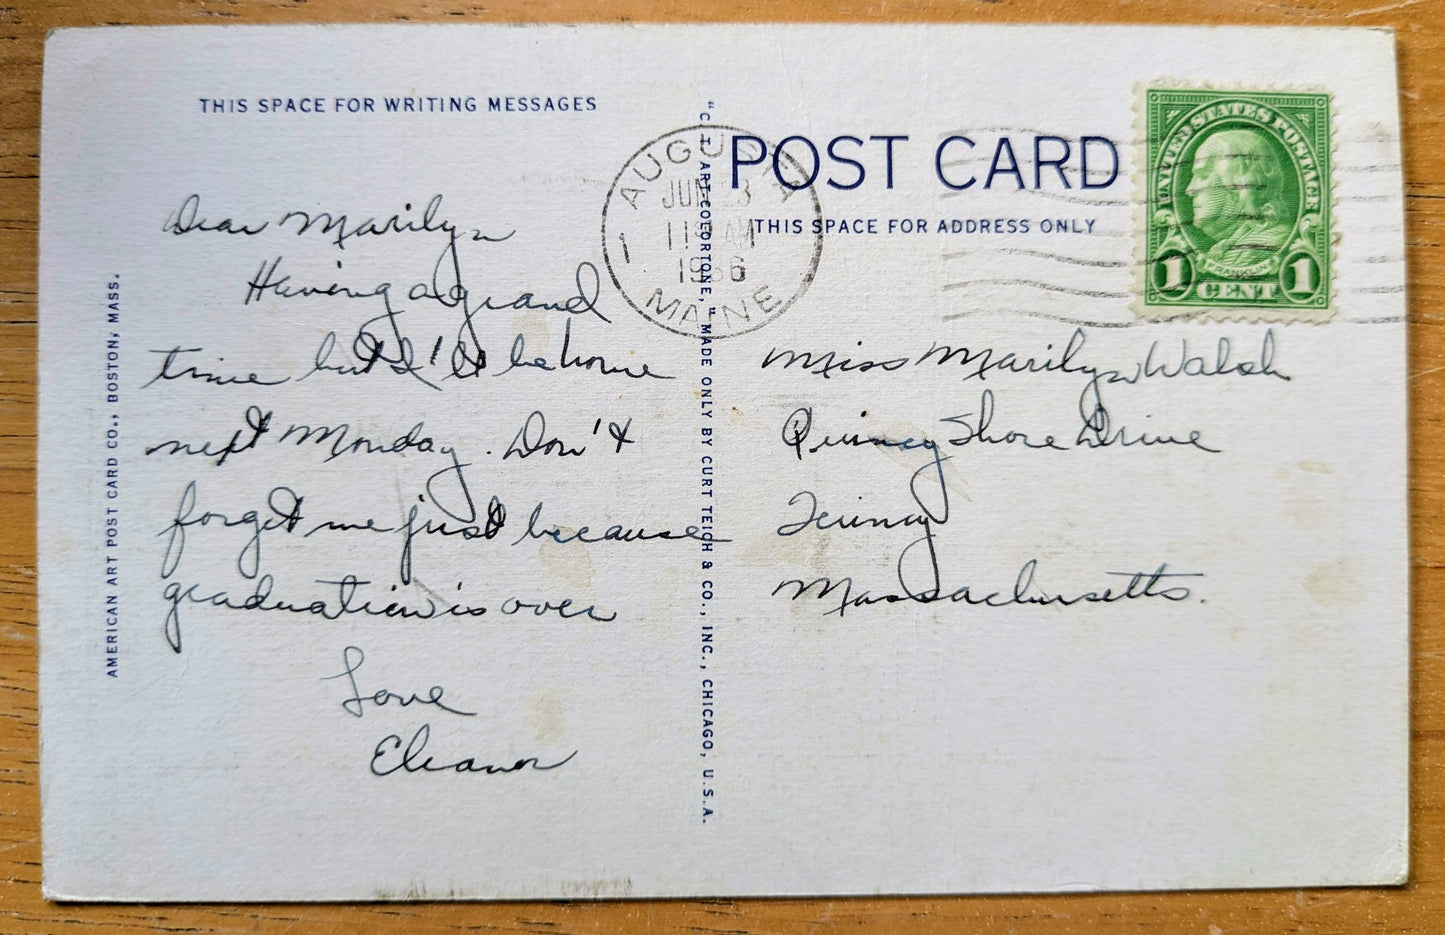 THIS SPACE FOR WRITING MESSAGES
Dear Marilyn
Having a grand
time but I'll be home
next Monday. Don't
forget me just because
graduation is over
Love
Eleanor
AMERICAN ART POST CARD CO., BOSTON, MASS.
"C.T. ART-COLORTONE," MADE ONLY BY CURT TEICH & CO., INC., CHICAGO, U.S.A.
POST CARD
THIS SPACE FOR ADDRESS ONLY
AUGUSTA
JUN 23
11 AM
1936
1
MAINE
UNITED STATES POSTAGE
FRANKLIN
1 CENT 1
Miss Marilyn Walsh
Quincy Shore Drive
Quincy
Massachusetts.